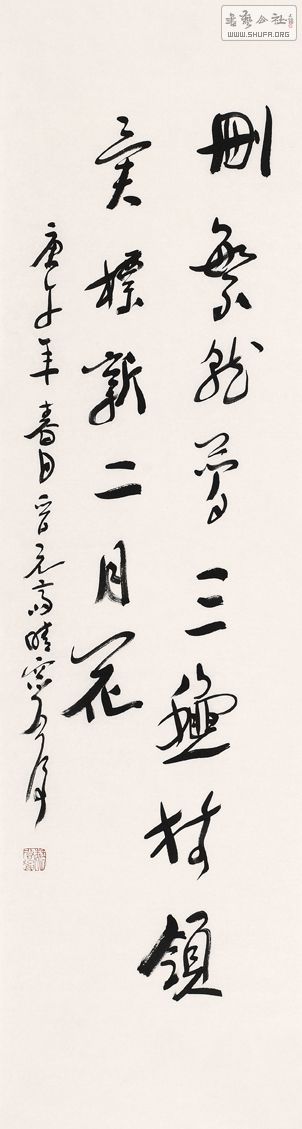 書藝公社
WWW.SHUFA.ORG
刪繁就简三秋树領
异標新二月花
庚午年春日晴窗